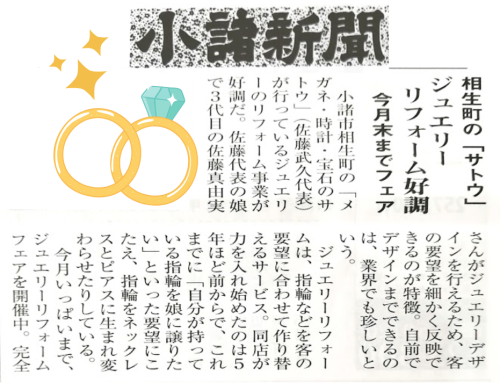 小諸新聞
相生町の「サトウ」
ジュエリー
リフォーム好調
今月末までフェア
小諸市相生町の「メ
ガネ・時計・宝石のサ
トウ」（佐藤武久代表）
が行っているジュエリ
ーのリフォーム事業が
好調だ。佐藤代表の娘
で３代目の佐藤真由実
さんがジュエリーデザ
インを行えるため、客
の要望を細かく反映で
きるのが特徴。自前で
デザインまでできるの
は、業界でも珍しいと
いう。
ジュエリーリフォー
ムは、指輪などを客の
要望に合わせて作り替
えるサービス。同店が
力を入れ始めたのは５
年ほど前からで、これ
までに「自分が持って
いる指輪を娘に譲りた
い」といった要望にこ
たえ、指輪をネックレ
スとピアスに生まれ変
わらせたりしている。
今月いっぱいまで、
ジュエリーリフォーム
フェアを開催中。完全